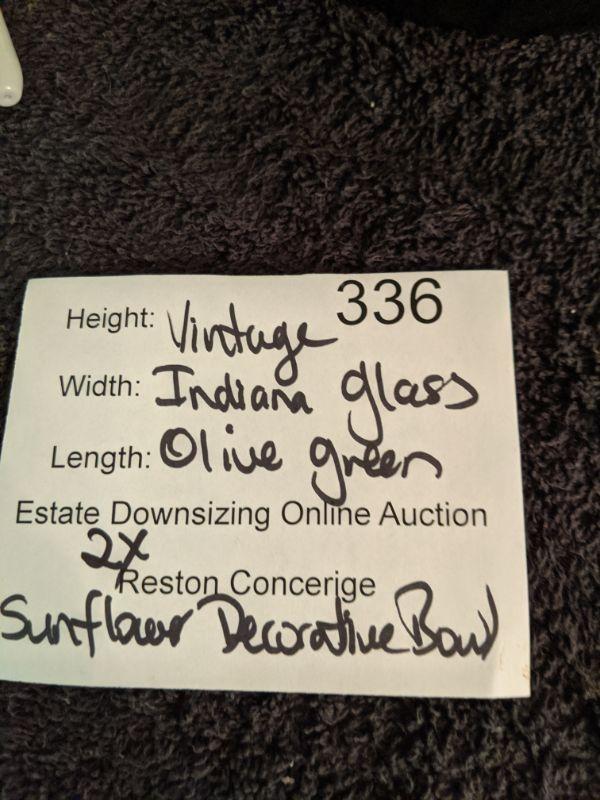 336
Height: Vintage
Width: Indiana glass
Length: Olive green
Estate Downsizing Online Auction
2X
Reston Concerige
Sunflower Decorative Bowl